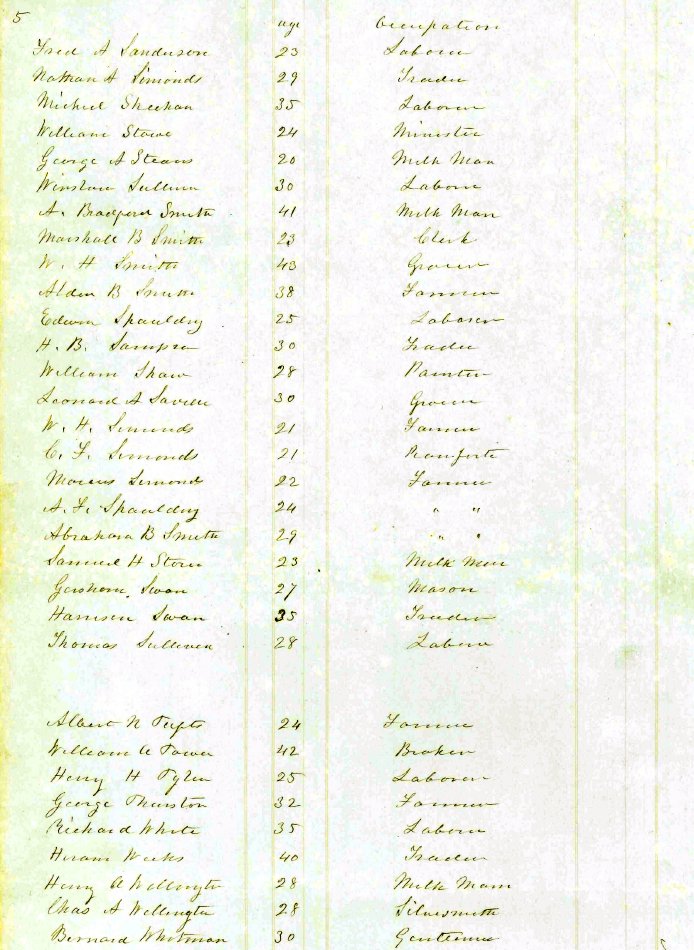 5
age Occupation
Fred A Sanderson 23 Laborer
Nathan A Simonds 29 Trader
Michiel Sheehan 35 Laborer
William Stowe 24 Minister
George A Stearns 20 Milk Man
Winslow Sullivan 30 Laborer
A. Bradford Smith 41 Milk Man
Marshall B Smith 23 Clerk
W. H Smith 43 Grocer
Alden B Smith 38 Farmer
Edwin Spaulding 25 Laborer
H. B. Sampson 30 Trader
William Shaw 28 Painter
Leonard A Saville 30 Grocer
W. H. Simonds 21 Farmer
C. F. Simonds 21 Pianforte
Marcus Simond 22 Farmer
A. F. Spaulding 24 " "
Abraham B Smith 29 " "
Samuel H Stone 23 Milk Man
Gershom Swan 27 Mason
Harrison Swan 35 Trader
Thomas Sulliven 28 Laborer
Albert N Tufts 24 Farmer
William A Tower 42 Broker
Henry H Tyler 25 Laborer
George Thurston 32 Farmer
Richard White 35 Laborer
Hiram Weeks 40 Trader
Henry A Wellington 28 Milk Man
Chas A Wellington 28 Silversmith
Bernard Whitman 30 Gentleman